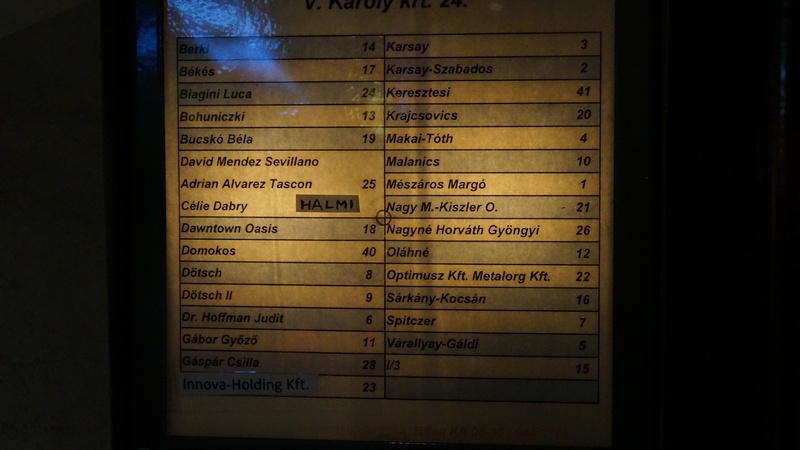 V. Károly krt. 24.
Berki 14
Békés 17
Biagini Luca 24
Bohuniczki 13
Bucskó Béla 19
David Mendez Sevillano
Adrian Alvarez Tascon 25
Célie Dabry HALMI
Dawntown Oasis 18
Domokos 40
Dötsch 8
Dötsch II 9
Dr. Hoffman Judit 6
Gábor Győző 11
Gáspár Csilla 28
Innova-Holding Kft. 23
Karsay 3
Karsay-Szabados 2
Keresztesi 41
Krajcsovics 20
Makai-Tóth 4
Malanics 10
Mészáros Margó 1
Nagy M.-Kiszler O. - 21
Nagyné Horváth Gyöngyi 26
Oláhné 12
Optimusz Kft. Metalorg Kft. 22
Sárkány-Kocsán 16
Spitczer 7
Várallyay-Gáldi 5
I/3 15